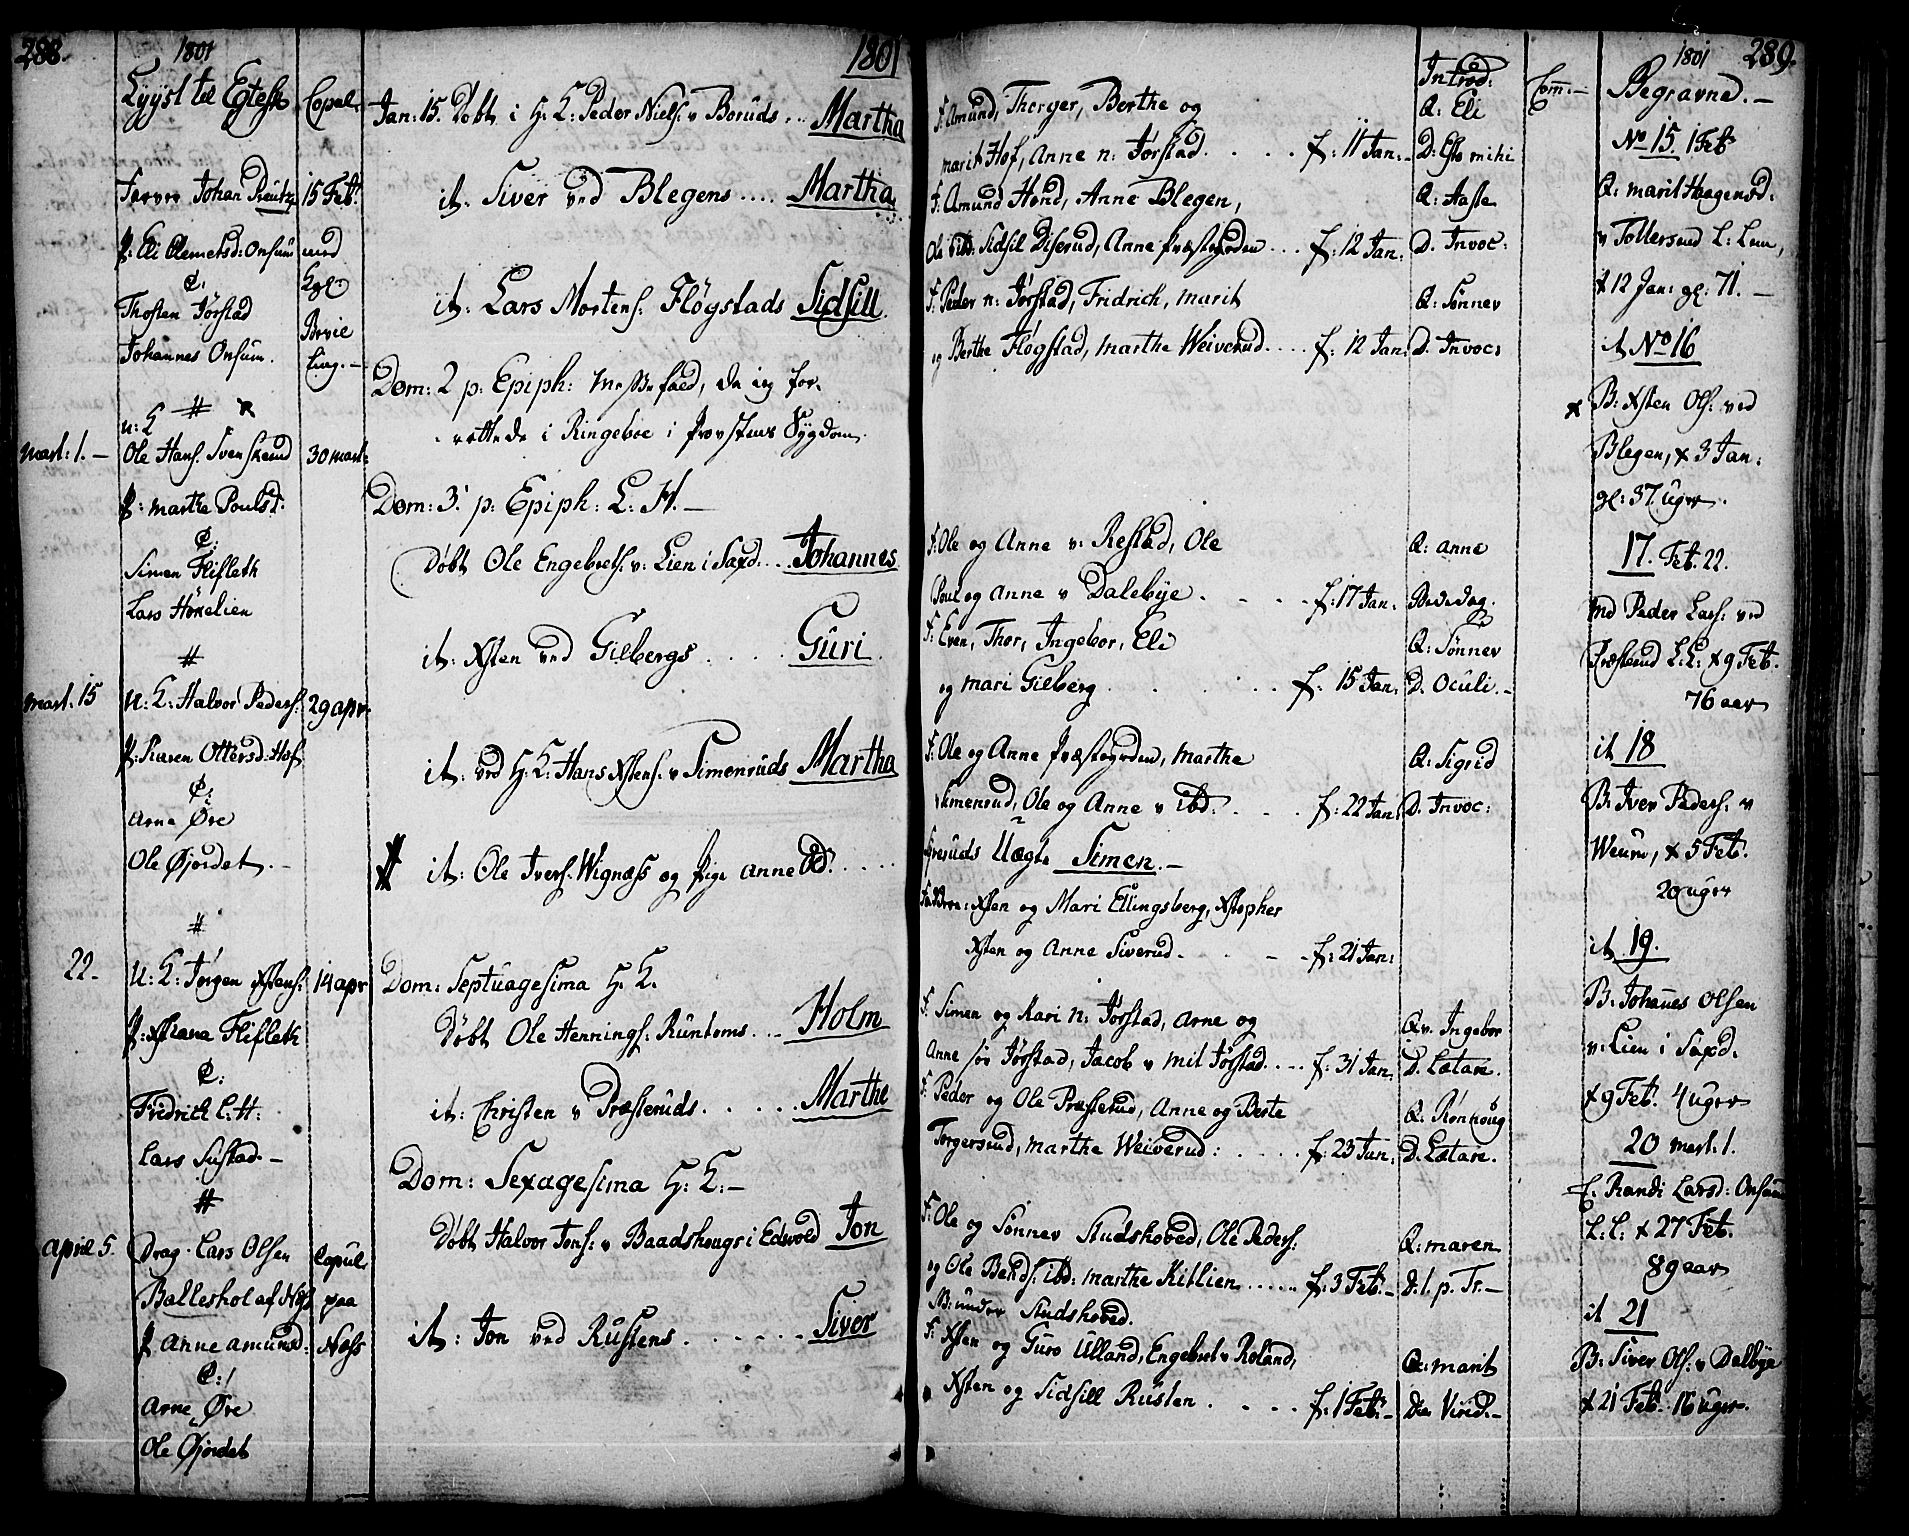 288.
1801
Lyyst til Egtesk
Copul.
Johan
15 Feb.
P: Eli Clemetsd: Onsum
med
C:
Kgl
Thosten Jörstad
Bevil
Johannes Onsum.
ling. -
#
u: K
Mart: 1. -
Ole Hans. Svenskerud
30 mart:
P: Marthe Poulsd:
C:
Simen Flifleth
Lars Hönelien
#
Mart. 15
U: K: Halvor Peders:
29 apr.
P: Karen Ottersd: Hof
C:
Arne Öre
Ole Öjordet. -
#
22.
U: K: Jörgen Xstens:
14 apr
P: Xstiana Flifleth
C:
Fridrich L: H:
Lars Sustad. -
#
April 5.
Drag. Lars Olsen
Copul.
Balleshol af Næs
paa
P Anne Amunds:
Næss
C:
Arne Öre
Ole Öjordet
1801
Jan: 15. Döbt i H: K: Peder Niels: v Boruds .. Martha
it. Siver ved Blegens .... Martha
it: Lars Mortens: Flögstads Sidsill.
Dom: 2 p: Epiph: Messefald, da jeg for-
rettede i Ringeboe i Provstens Sygdom.
Dom: 3. p: Epiph: L: H. -
Döbt Ole Engebrets: v: Lien i Saxd: .. Johannes
it: Xsten ved Gilbergs .... Guri
it. ved H: K: Hans Xstens: v Simenruds Martha
it: Ole Ivers. Wignæss og Pige Anne Od. ...
Dom: Septuagesima H: K.
Döbt Ole Hennings: Runtoms .. Holm
it: Christen v Præsteruds ..... Marthe
Dom: Sexagesima H: K: -
Döbt Halvor Jons: v Baadshougs i Edsvold Jon
it: Jon ved Rustens ...... Siver
1801
289.
Introd:
Com: -
Begravne. -
F: Amund, Thorger, Berthe og
Q: Eli
Marit Hof, Anne n: Jörstad .... f. 11 Jan:
D: Esto mihi
F: Amund Hond, Anne Blegen,
Q: Aaste
Ole ibid: Sidsil Diserud, Anne Præstegrden ... f: 12 Jan:
D. Invoc:
F: Peder n: Jörstad, Fridrich, Marit
Q: Sönnev
og Berthe Flögstad, Marthe Weiverud .... f: 12 Jan:
D. Invoc:
F: Ole og Anne v: Restad, Ole
Q: Anne
Poul og Anne v Dalebye .... f: 17 Jan:
Bededag.
F: Even, Thor, Ingebor, Eli
Q: Sönnev
og Mari Gilberg ..... f: 15 Jan:
D. Oculi. -
F: Ole og Anne Præstegrden, Marthe
Q: Sigrid
Simenrud, Ole og Anne v ibd: ... f: 22 Jan:
D. Invoc:
Uægte Simen. -
Faddere: Xsten og Mari Ellingsberg, Xstopher
Xsten og Anne Siverud .... f: 21 Jan:
F: Simen og Kari n: Jörstad, Arne og
Qv. Ingebor
Anne sör Jörstad, Jacob v mit Jörstad .... f: 31 Jan:
D. Lætare.
F: Peder og Ole Præsterud, Anne og Berte
Q. Rönnoug
Torgersrud, Marthe Weiverud: .... f: 23 Jan:
D. Lætare.
F: Ole og Sönnev Studshoved, Ole Peders:
Q: Maren
og Ole Bends: ibd: Marthe Killien ..... f: 3 Feb: -
D: 1. p. Tr. -
B: under Studshoved.
F: Xsten og Guro Ulland, Engebret v Roland,
Q: Marit
Xsten og Sidsill Rusten .... f: 1 Feb: -
Die Virid: -
No 15. 1 Feb
Q: Marit Haagensd:
v Tollersrud L: Lem,
† 12 Jan: gl: 71. -
it No 16
B: Xsten Ols: ved
Blegen, † 3 Jan:
gl: 37 uger.
17. Feb. 22.
Md Peder Lars: ved
Præsterud L: L: † 9 Feb.
76 aar
it 18
B: Iver Peders: v
† 5 Feb.
20 uger
it 19.
B. Johannes Olsen
v: Lien i Saxd.
† 9 Feb. 4 uger
20 mart. 1.
E: Randi Larsd: Onsum
L: L: † 27 Feb.
89 aar
it 21
B: Siver Ols: v Dalbye
† 21 Feb. 16 uger.